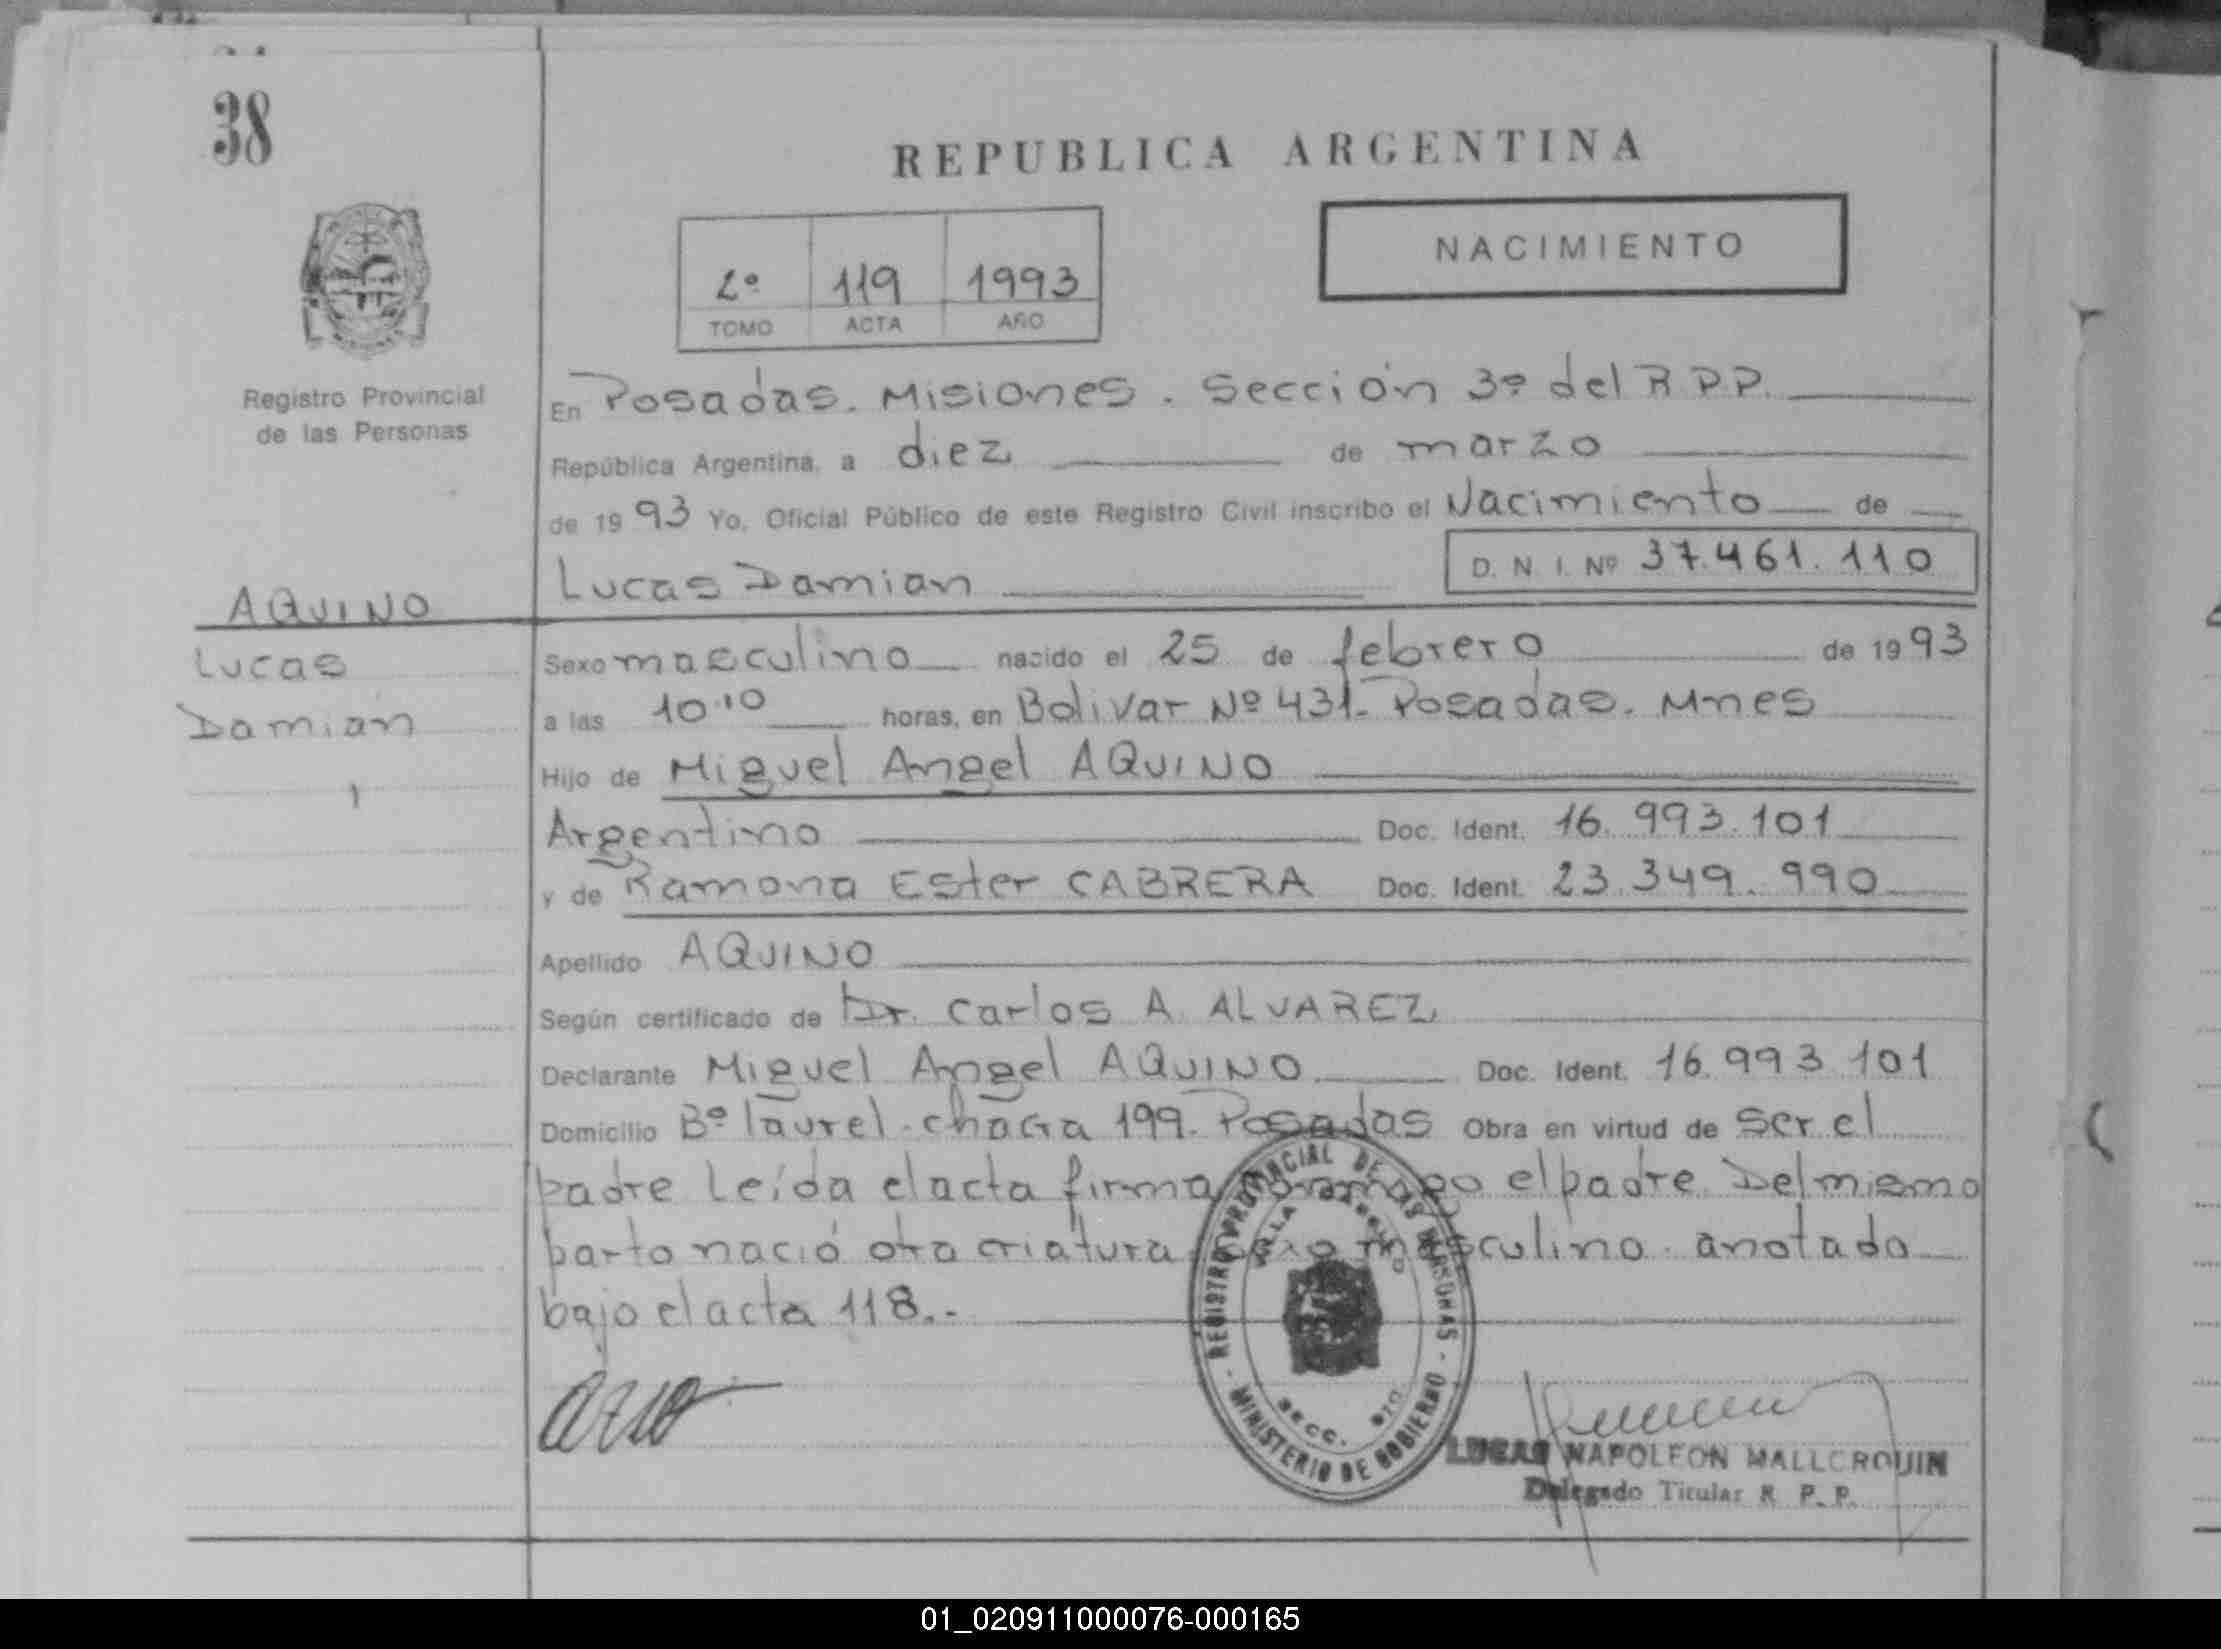 38
REPUBLICA ARGENTINA
NACIMIENTO
2º 119 1993
TOMO ACTA AÑO
Registro Provincial
de las Personas
En Posadas. Misiones. Sección 3º del R.P.P.
República Argentina, a diez de marzo
de 1993 Yo, Oficial Público de este Registro Civil inscribo el Nacimiento de
Lucas Damian D. N. I. Nº 37.461.110
AQUINO
Lucas
Damián
Sexo masculino nacido el 25 de febrero de 1993
a las 10.10 horas, en Bolivar Nº 431. Posadas. Mnes
Hijo de Miguel Angel AQUINO
Argentino Doc. Ident. 16.993.101
y de Ramona Ester CABRERA Doc. Ident. 23.349.990
Apellido AQUINO
Según certificado de Dr. Carlos A. ALVAREZ
Declarante Miguel Angel AQUINO Doc. Ident. 16.993.101
Domicilio Bº laurel. chacra 199. Posadas Obra en virtud de ser el
padre Leída el acta firma conmigo el padre. Del mismo
parto nació otra criatura sexo masculino. anotado
bajo el acta 118.-
REGISTRO PROVINCIAL DE LAS PERSONAS
MINISTERIO DE GOBIERNO
VILLA
SECC.
LUCAS NAPOLEON MALLORQUIN
Delegado Titular R. P. P.
01_020911000076-000165